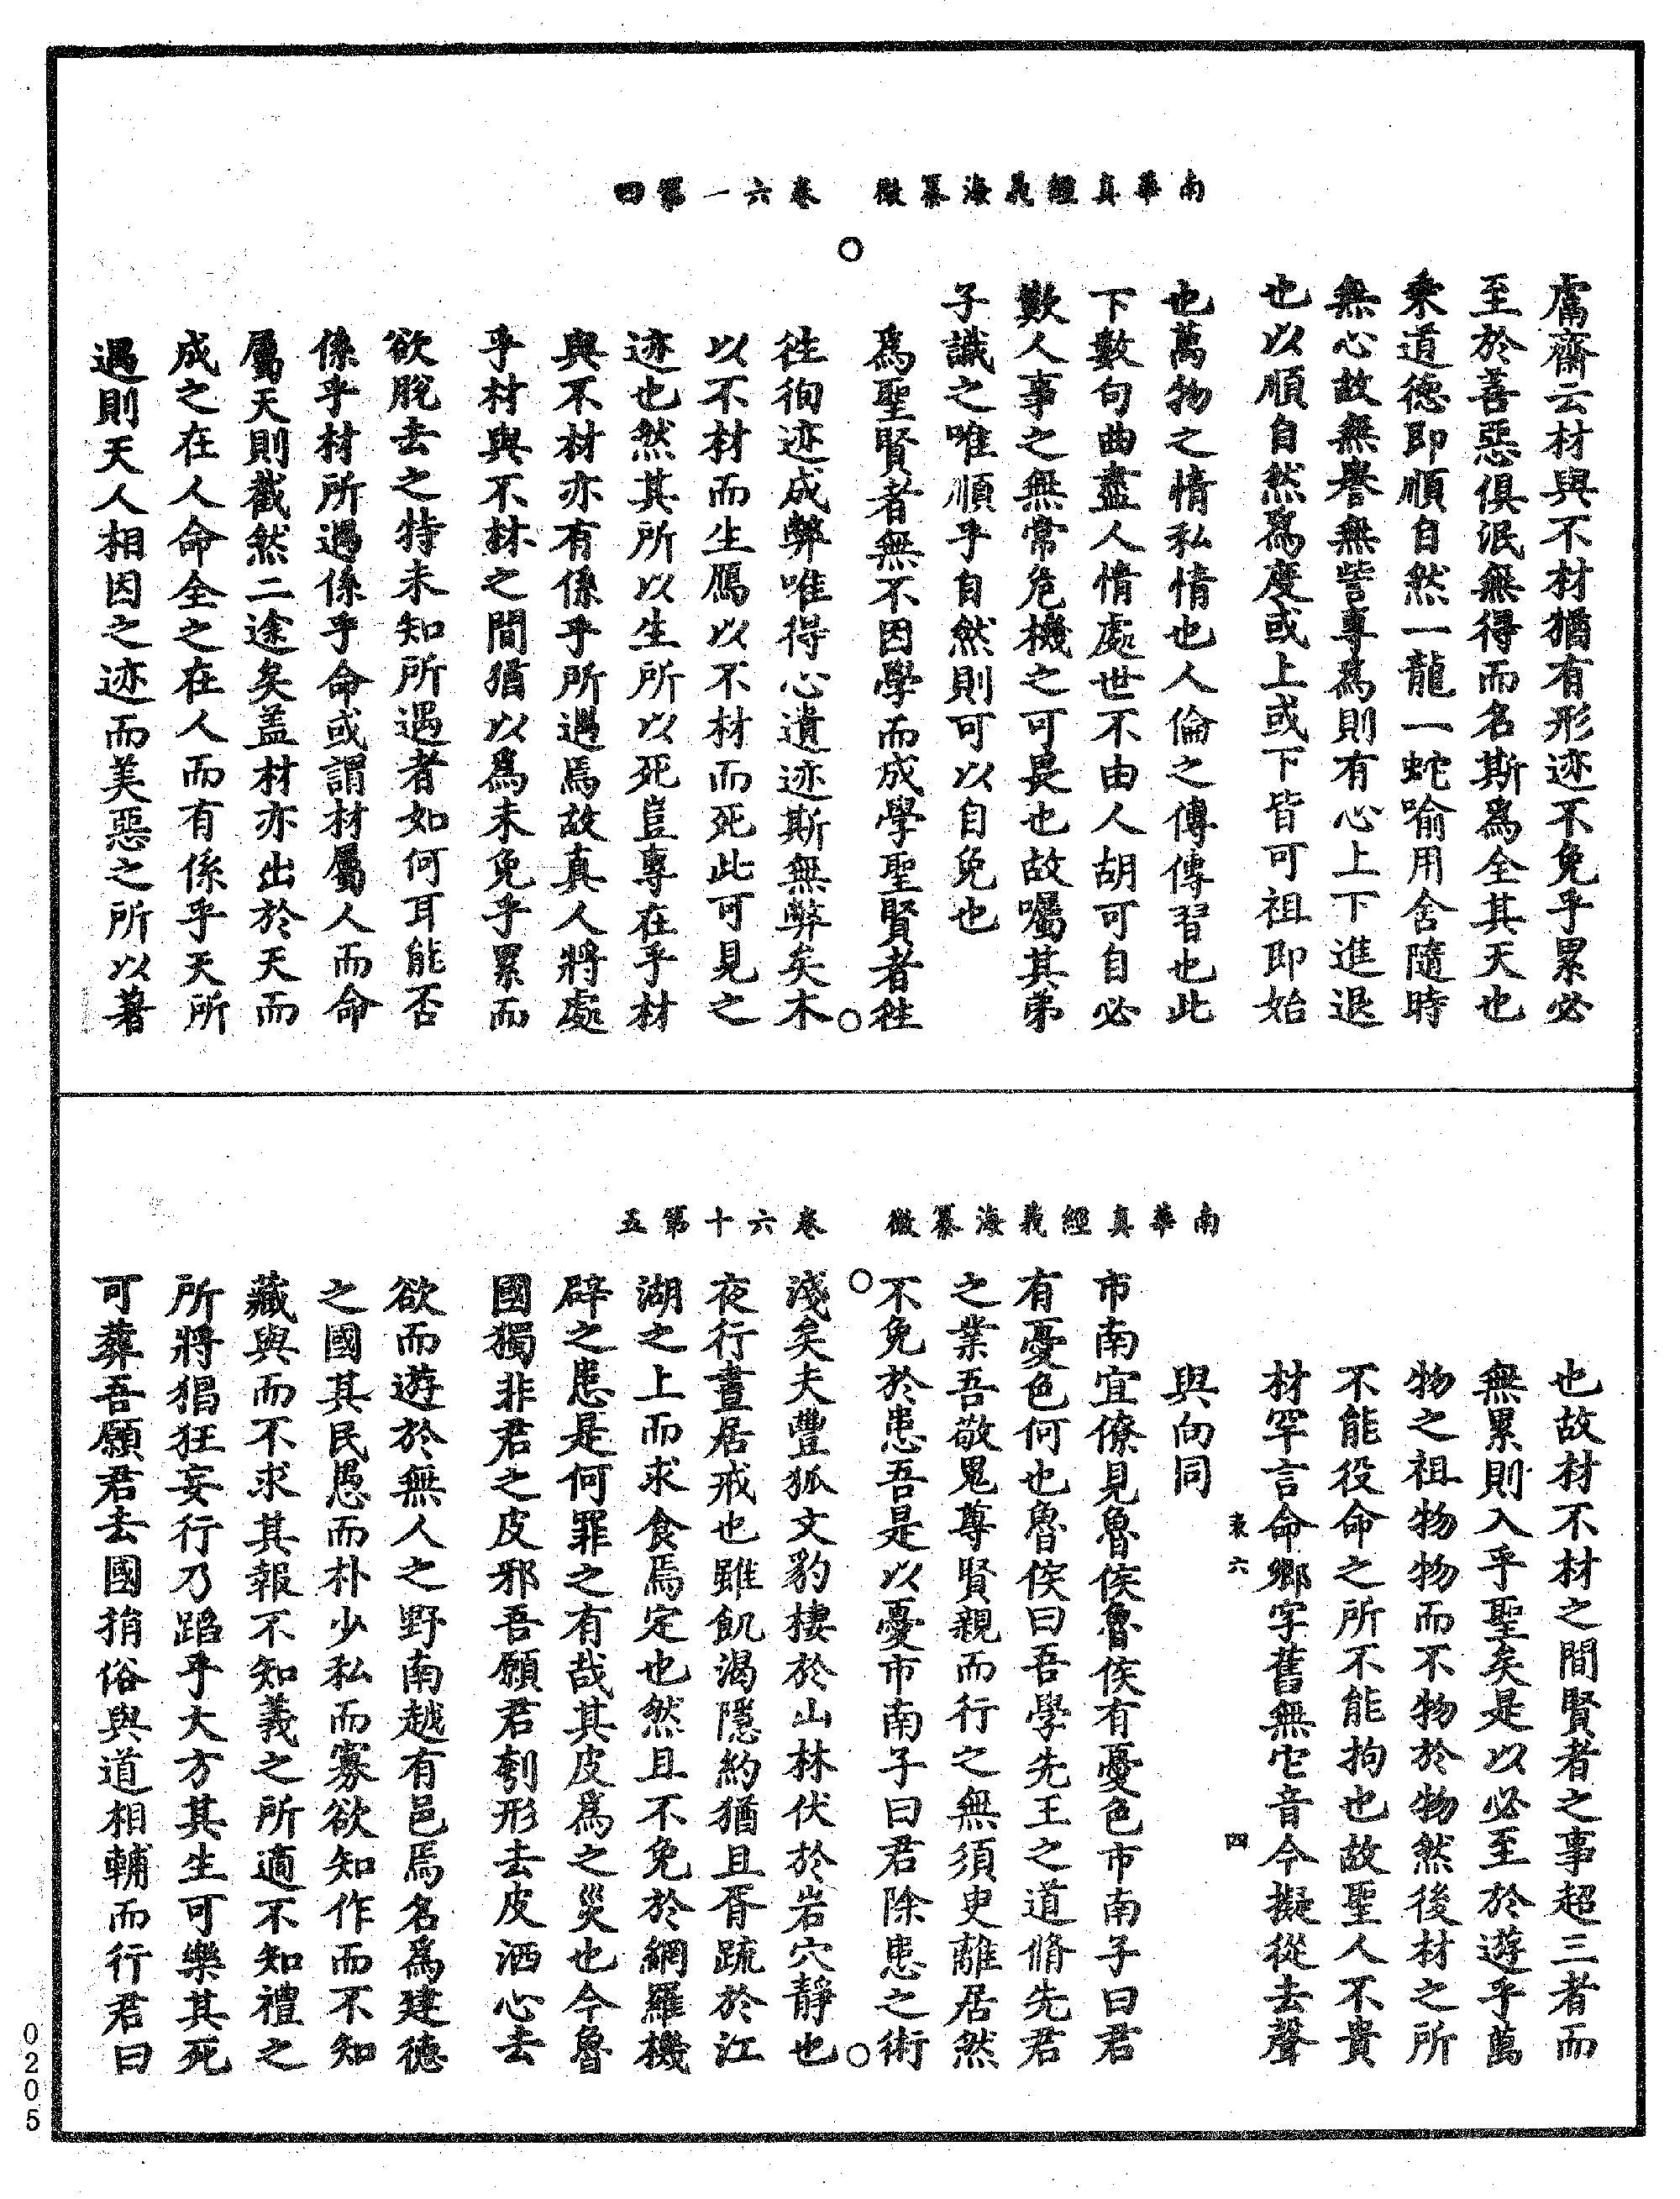 南華真經義海纂微　卷六一第四
鬳齋云材與不材猶有形迹不免乎累必
至於善惡俱泯無得而名斯為全其天也
乘道德即順自然一龍一蛇喻用舍隨時
無心故無譽無訾專為則有心上下進退
也以順自然為度或上或下皆可祖即始
也萬物之情私情也人倫之傳傳習也此
下數句曲盡人情處世不由人胡可自必
歎人事之無常危機之可畏也故囑其弟
子識之唯順乎自然則可以自免也
○為聖賢者無不因學而成學聖賢者往○
往徇迹成弊唯得心遺迹斯無弊矣木
以不材而生鴈以不材而死此可見之
迹也然其所以生所以死豈專在乎材
與不材亦有係乎所遇焉故真人將處
乎材與不材之間猶以為未免乎累而
欲脫去之特未知所遇者如何耳能否
係乎材所遇係乎命或謂材屬人而命
屬天則截然二途矣蓋材亦出於天而
成之在人命全之在人而有係乎天所
遇則天人相因之迹而美惡之所以著
南華真經義海纂微　卷六十第五
也故材不材之間賢者之事超三者而
無累則入乎聖矣是以必至於遊乎萬
物之祖物物而不物於物然後材之所
不能役命之所不能拘也故聖人不貴
材罕言命鄉字舊無它音今擬從去聲
與向同
表六　四
市南宜僚見魯侯魯侯有憂色市南子曰君
有憂色何也魯侯曰吾學先王之道脩先君
之業吾敬鬼尊賢親而行之無須臾離居然
○不免於患吾是以憂市南子曰君除患之術○
淺矣夫豐狐文豹棲於山林伏於岩穴靜也
夜行晝居戒也雖飢渴隱約猶且胥疏於江
湖之上而求食焉定也然且不免於網羅機
辟之患是何罪之有哉其皮為之災也今魯
國獨非君之皮邪吾願君刳形去皮洒心去
欲而遊於無人之野南越有邑焉名為建德
之國其民愚而朴少私而寡欲知作而不知
藏與而不求其報不知義之所適不知禮之
所將猖狂妄行乃蹈乎大方其生可樂其死
可葬吾願君去國捐俗與道相輔而行君曰
0205